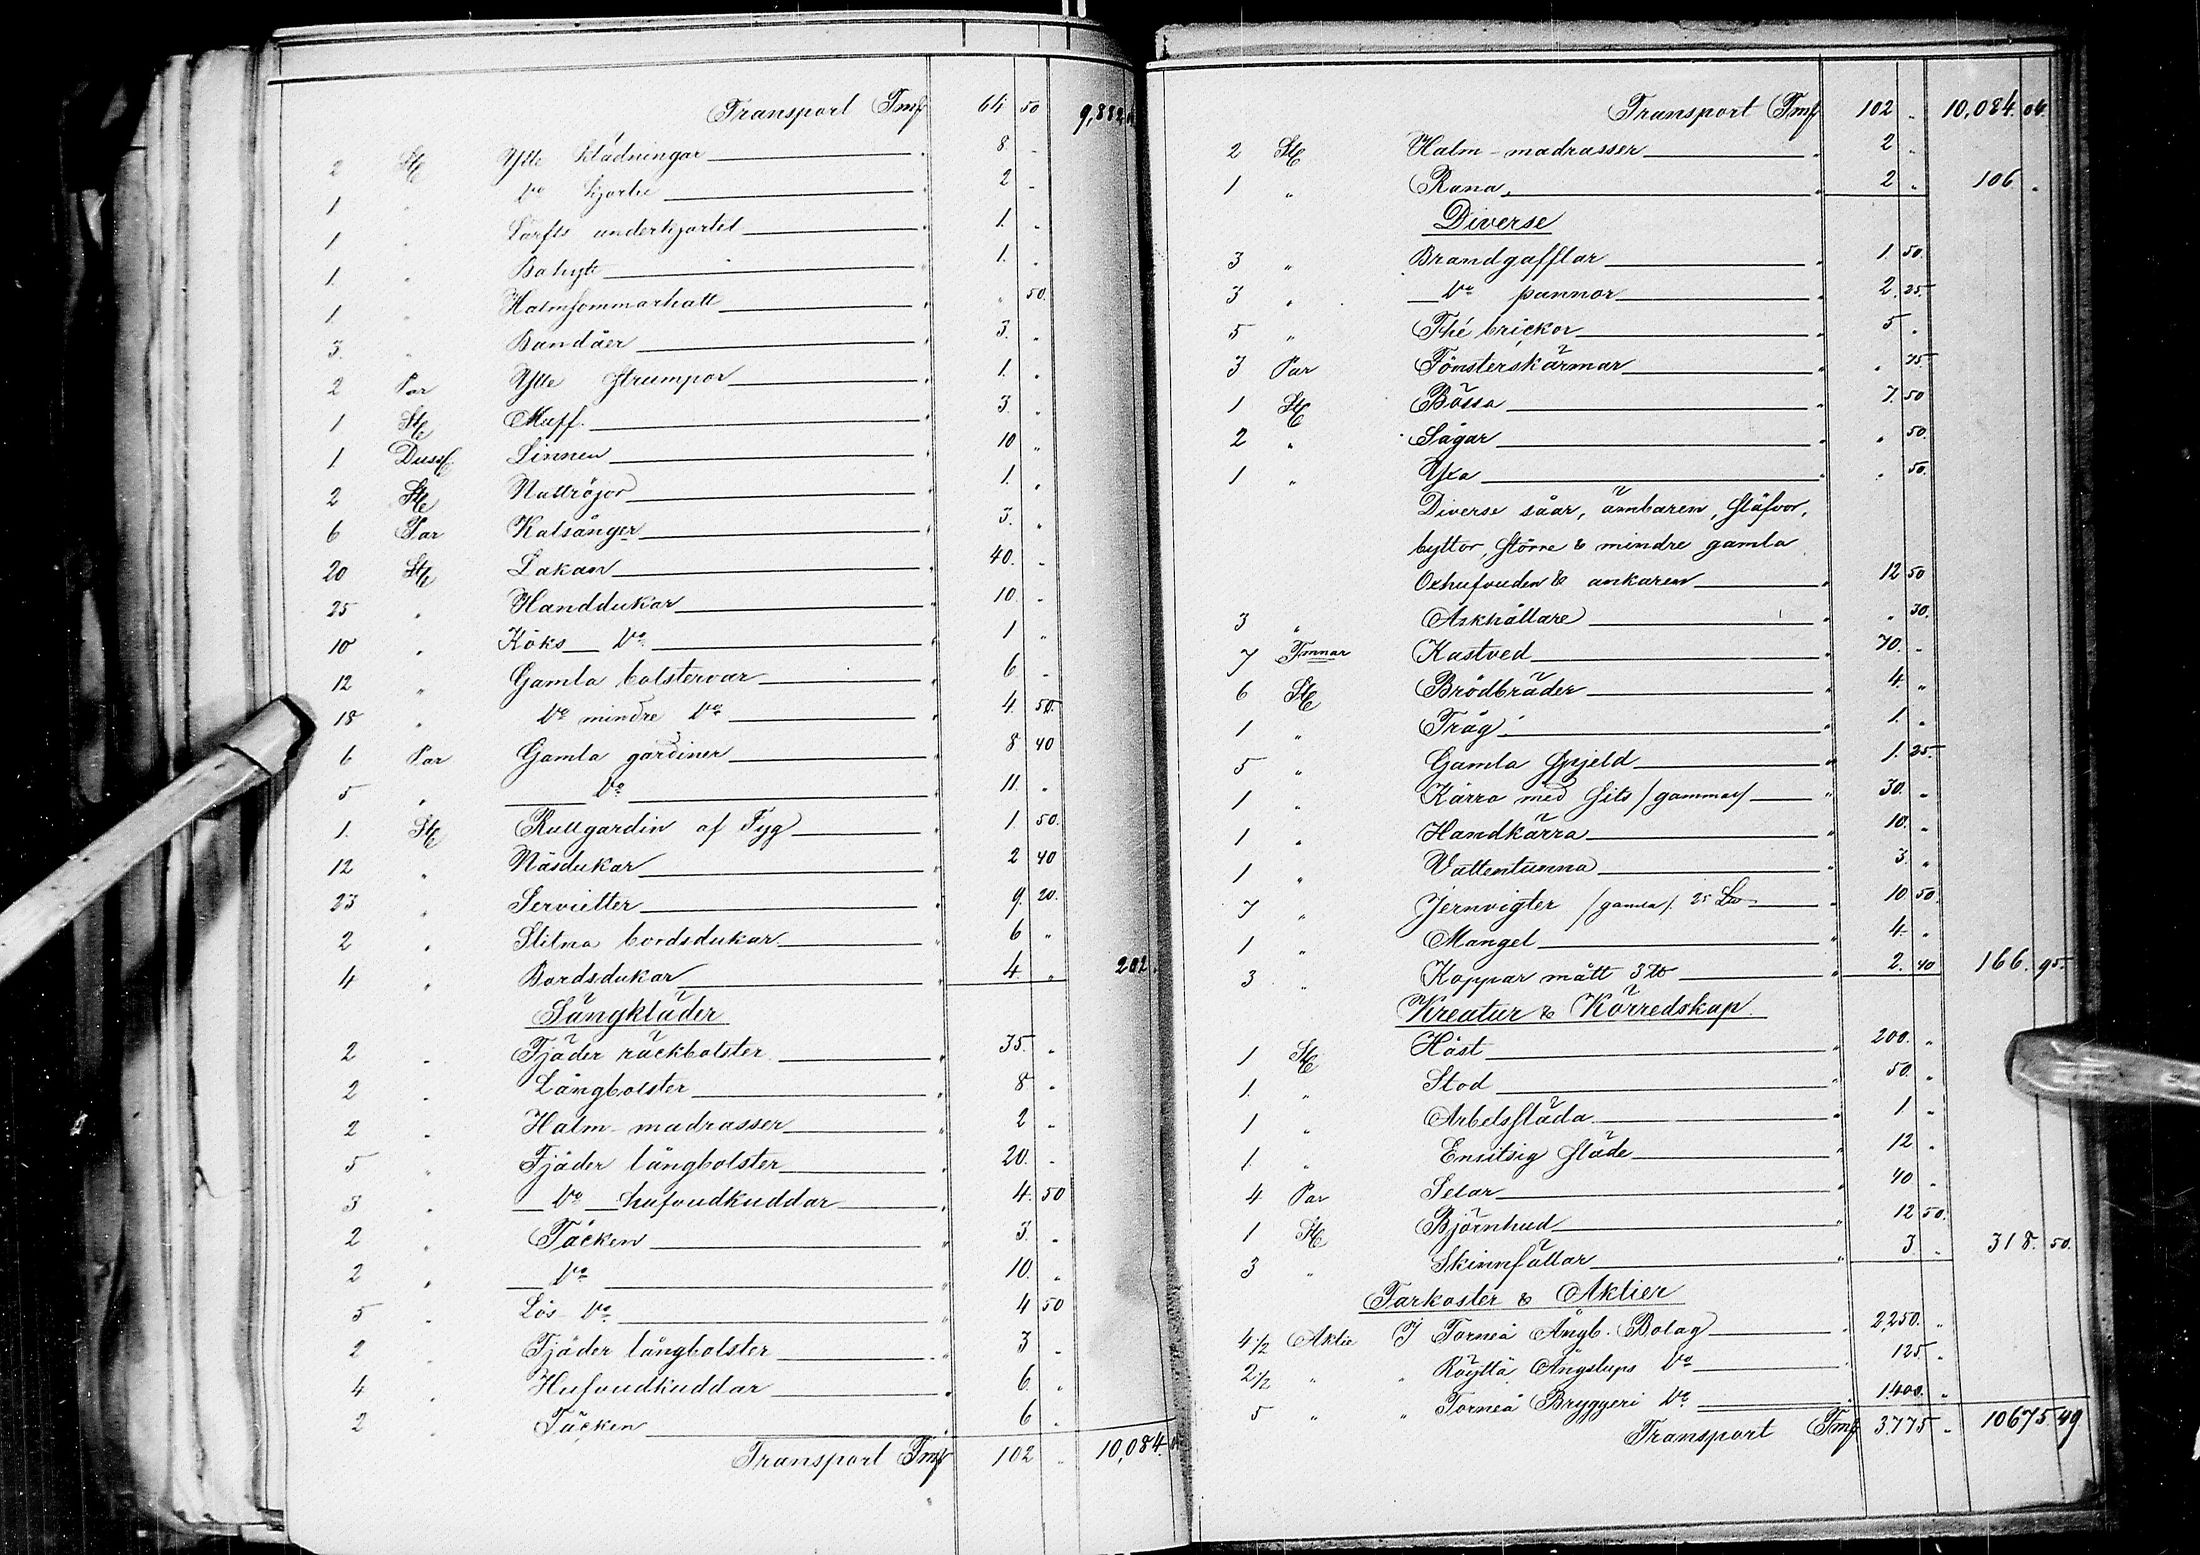 Transport Fmk 64 50 9,882
2 St Ylle klädningar " 8 "
1 " Do kjortel " 2 "
1 " Lärfts underkjortel " 1. "
1. " Bahytt " 1. "
1. " Halmsommarhatt " " 50.
3. " Bandäer " 3. "
2 Par Ylle strumpor " 1. "
1 St Muff. " 3. "
1. Duss Linnen " 10 "
2 St Nattröjor " 1. "
6 Par Kalsånger " 3. "
20 St Lakan " 40. "
25 " Handdukar " 10. "
10 " Köks Do " 1 "
12 " Gamla bolstervar " 6 "
18 " Do mindre Do " 4. 50.
6 Par Gamla gardiner " 8 40
5 " Do " 11. "
1. St Rullgardin af Tyg " 1. 50.
12 " Näsdukar " 2 40
23 " Servietter " 9. 20.
2 " Slitna bordsdukar " 6 "
4 " Bordsdukar " 4. " 202.
Sängkläder
2 " Fjäder räckbolster " 35. "
2 " Långbolster " 8 "
2 " Halm-madrasser " 2 "
5 " Fjäder långbolster " 20. "
3 " Do hufvudkuddar " 4. 50
2 " Täcken " 3. "
2 " Do " 10. "
5 " Lös Do " 4 50
2 " Fjäder långbolster " 3 "
4 " Hufvudkuddar " 6. "
2 " Täcken " 6 "
Transport Fmk 102 " 10,084.
Transport Fmk 102 " 10,084. 04.
2 St Halm-madrasser " 2 "
1 " Rana " 2 " 106. "
Diverse
3 " Brandgafflar " 1. 50.
3 " Do pannor " 2. 25.
5 " Thé brickor " 5 "
3 Par Fönsterskärmar " " 75.
1 St Bössa " 7. 50
2 " Sågar " " 50.
1 " Yxa " " 50.
Diverse såar, ämbaren, stäfvor,
byttor, större & mindre gamla
Oxhufvuden & ankaren " 12 50
3 " Askhållare " " 30.
7 Fmnar Kastved " 70. "
6 St Brödbräder " 4. "
1 " Tråg " 1. "
5 " Gamla spjeld " 1. 25.
1 " Kärra med sits /gammal/ " 30. "
1 " Handkärra " 10. "
1 " Vattentunna " 3. "
7 " Jernvigter /gamla/. 25 " 10 50.
1 " Mangel " 4. "
3 " Koppar mått " 2. 40 166. 95.
Kreatur & Körredskap.
1 St Häst " 200. "
1. " Stod " 50. "
1 " Arbetsslada " 1 "
1. " Ensitsig släde " 12 "
4 Par Selar " 40 "
1 St Björnhud " 12 50.
3 " Skinnfällar " 3 " 318. 50.
Farkoster & Aktier
4 1/2 Aktie I Torneå Ångb. Bolag " 2,250. "
2 1/2 " " Röyttä Ångslups Do " 125. "
5 " " Torneå Bryggeri Do " 1,400. "
Transport Fmk 3,775 " 10675 49